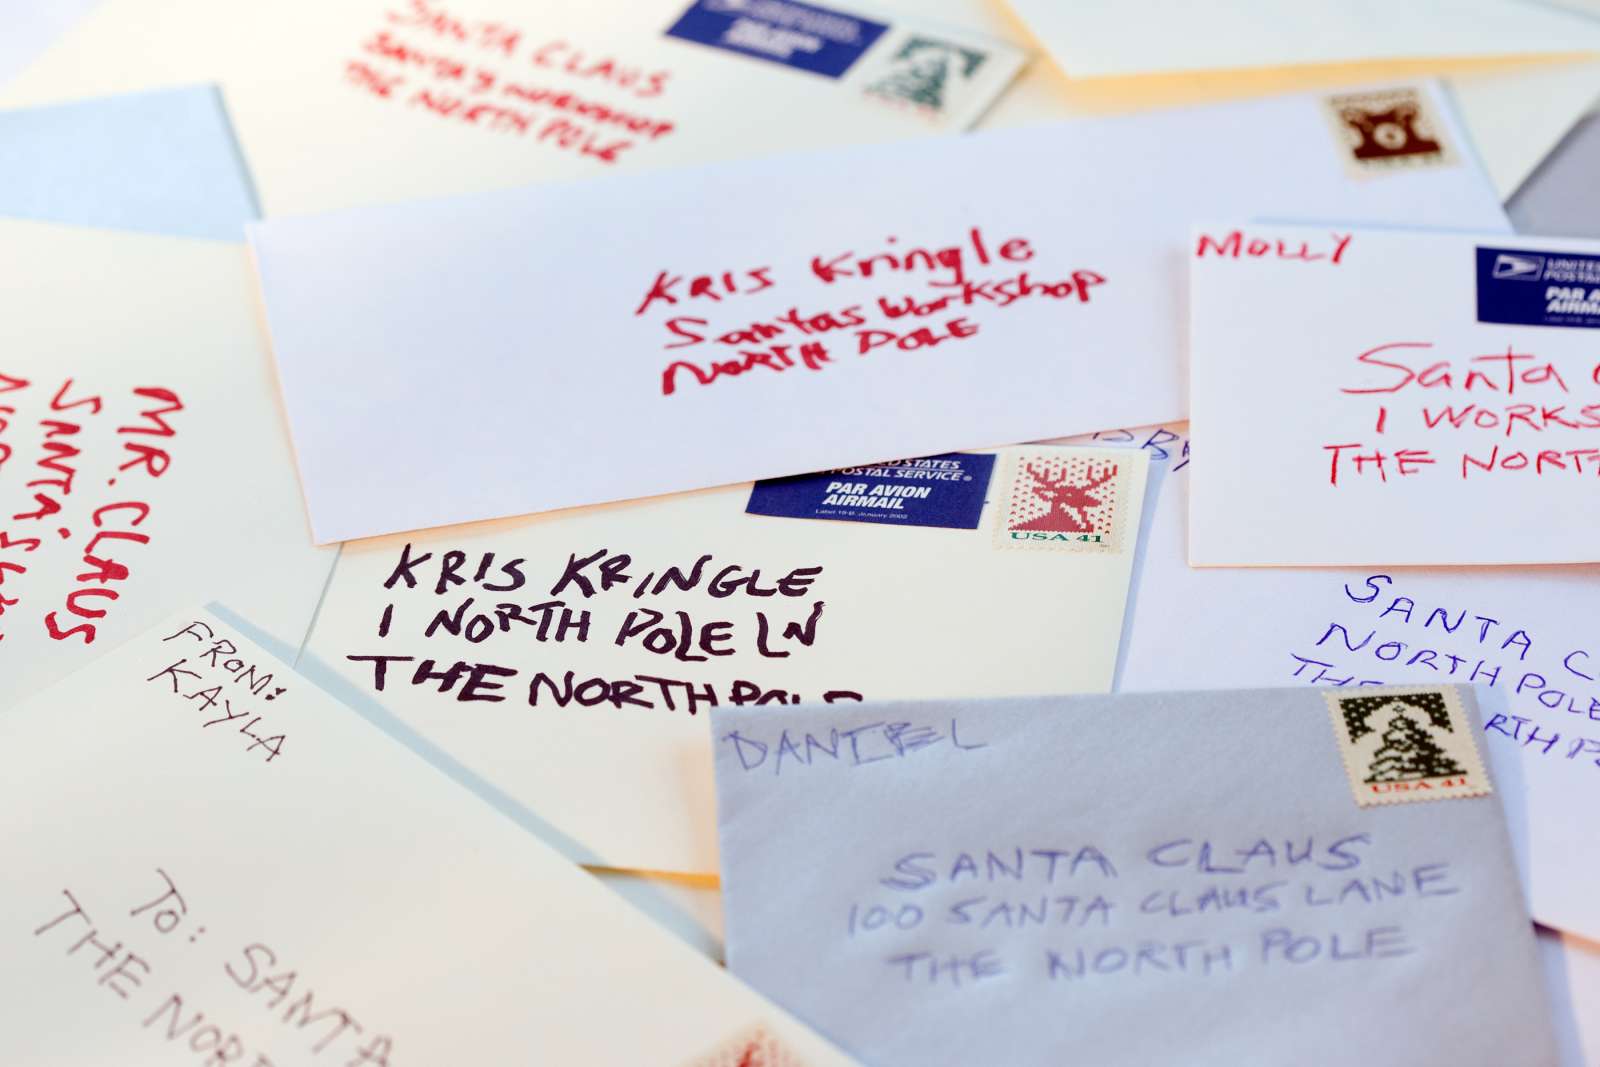 SANTA CLAUS
SANTA'S WORKSHOP
THE NORTH POLE
KRIS Kringle
Santas Workshop
NORTH POLE
MOLLY
UNITED
POSTAL
PAR AV
AIRMA
Santa
1 WORKS
THE NORT
MR. CLAUS
SANTA'S
UNITED STATES
POSTAL SERVICE®
PAR AVION
AIRMAIL
Label 19-B, January 2002
USA 41
KRIS KRINGLE
1 NORTH POLE LN
THE NORTH POLE
SANTA C
NORTH POLE
THE
RTH P
FROM:
KAYLA
TO: SANTA
THE NOR
DANIEL
USA 41
SANTA CLAUS
100 SANTA CLAUS LANE
THE NORTH POLE